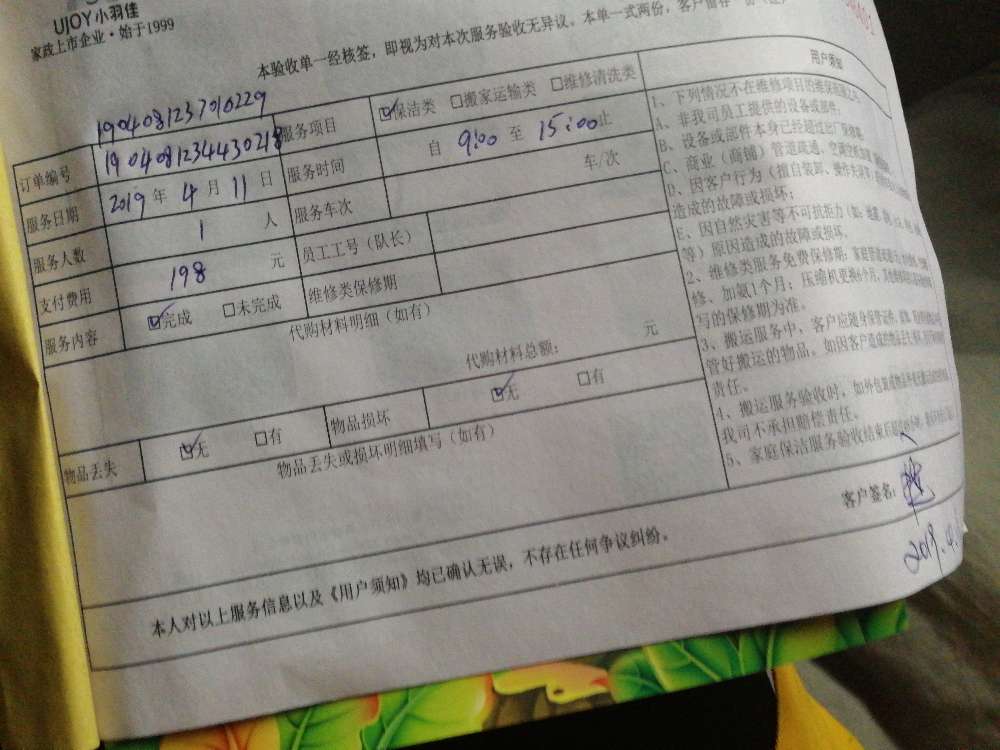 UJOY小羽佳
家政上市企业·始于1999
本验收单一经核签，即视为对本次服务验收无异议。本单一式两份，客户留存一
1904081237010229
订单编号 1904081234430218 服务项目 保洁类 □搬家运输类 □维修清洗类
服务日期 2019 年 4 月 11 日 服务时间 自 9:00 至 15:00 止
服务人数 1 人 服务车次 车/次
支付费用 198 元 员工工号（队长）
服务内容 完成 □未完成 维修类保修期
代购材料明细（如有）
代购材料总额： 元
物品丢失 无 □有 物品损坏 无 □有
物品丢失或损坏明细填写（如有）
用户须知
1、下列情况不在维修项目的维保范围之内
A、非我司员工提供的设备或部件。
B、设备或部件本身已经超过出厂保修期。
C、商业（商铺）管道疏通、空调
D、因客户行为（擅自装卸、操作
造成的故障或损坏；
E、因自然灾害等不可抗拒力（如：地震
等）原因造成的故障或损坏。
2、维修类服务免费保修期：家庭管道疏通
修、加氟1个月；压缩机更换6个月，其他
写的保修期为准。
3、搬运服务中，客户应随身保管
管好搬运的物品。如因客户造成的
责任。
4、搬运服务验收时，如外包装
我司不承担赔偿责任。
5、家庭保洁服务验收结束后
客户签名：
2019.4.
本人对以上服务信息以及《用户须知》均已确认无误，不存在任何争议纠纷。